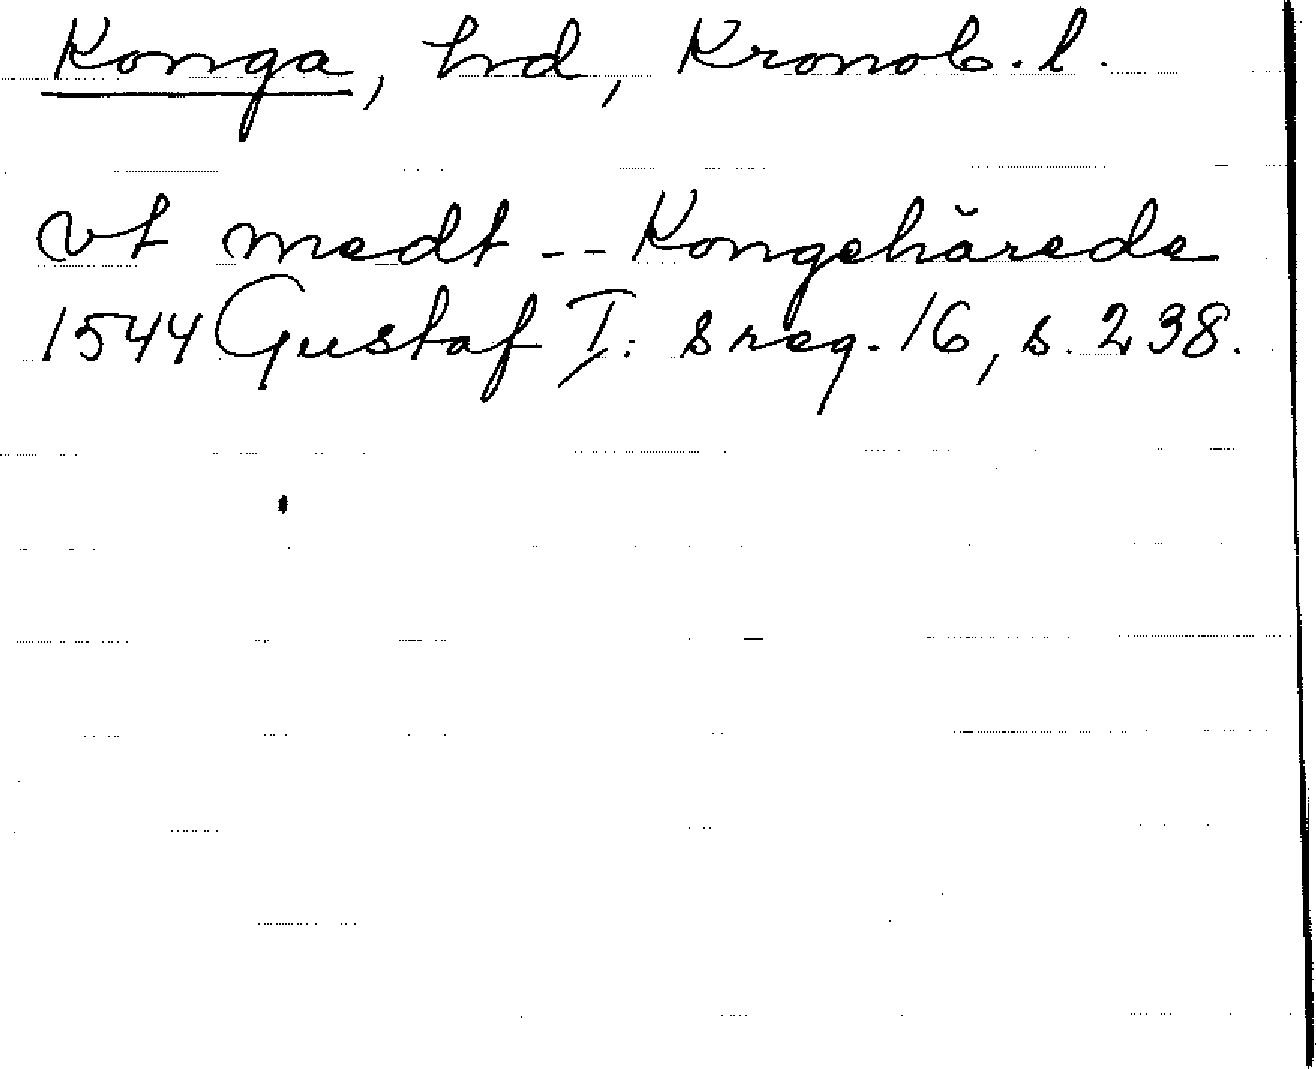 Konga, hrd, Kronob. l.
vt medt -- Kongehärede
1544 Gustaf I:s reg. 16, s. 238.